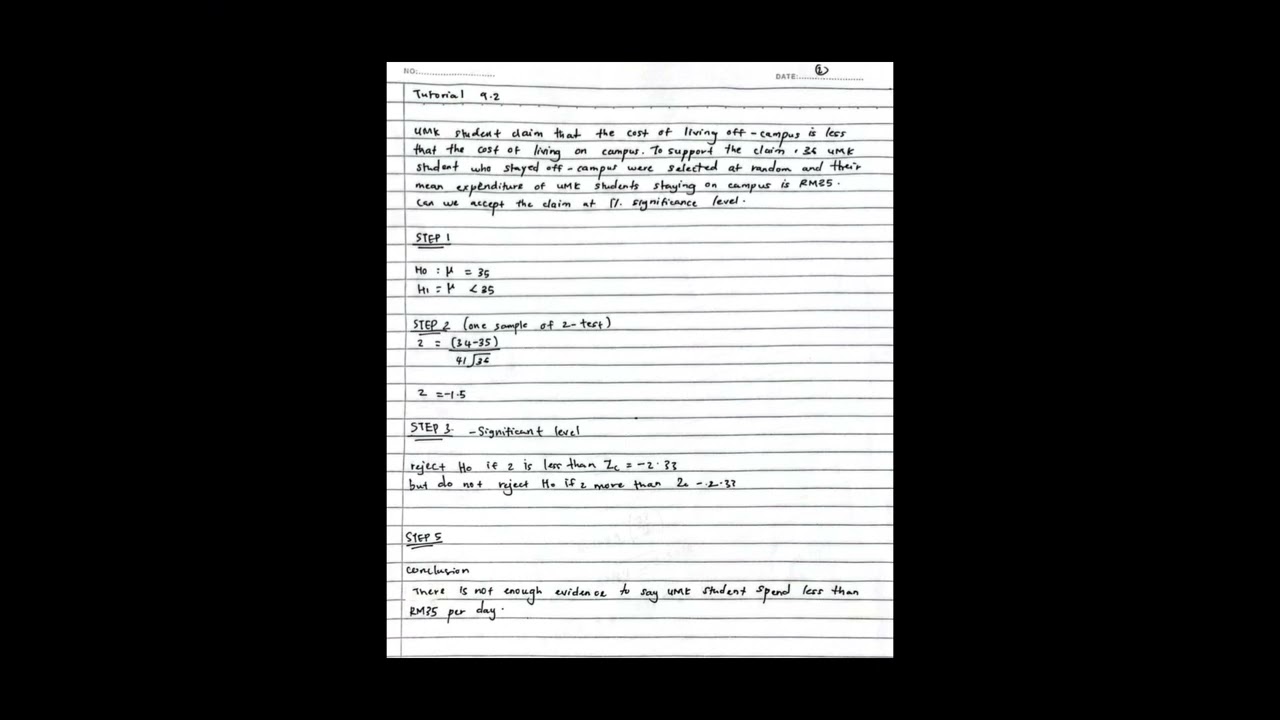 NO:
DATE: 2
Tutorial 9.2
UMK student claim that the cost of living off-campus is less
that the cost of living on campus. To support the claim, 36 UMK
student who stayed off-campus were selected at random and their
mean expenditure of UMK students staying on campus is RM35.
Can we accept the claim at 1% significance level.
STEP 1
H0 : μ = 35
H1 = μ < 35
STEP 2 (one sample of z-test)
z = (34-35)
4/√36
z = -1.5
STEP 3 - Significant level
reject H0 if z is less than Zc = -2.33
but do not reject H0 if z more than Zc -2.33
STEP 5
conclusion
There is not enough evidence to say UMK student spend less than
RM35 per day.